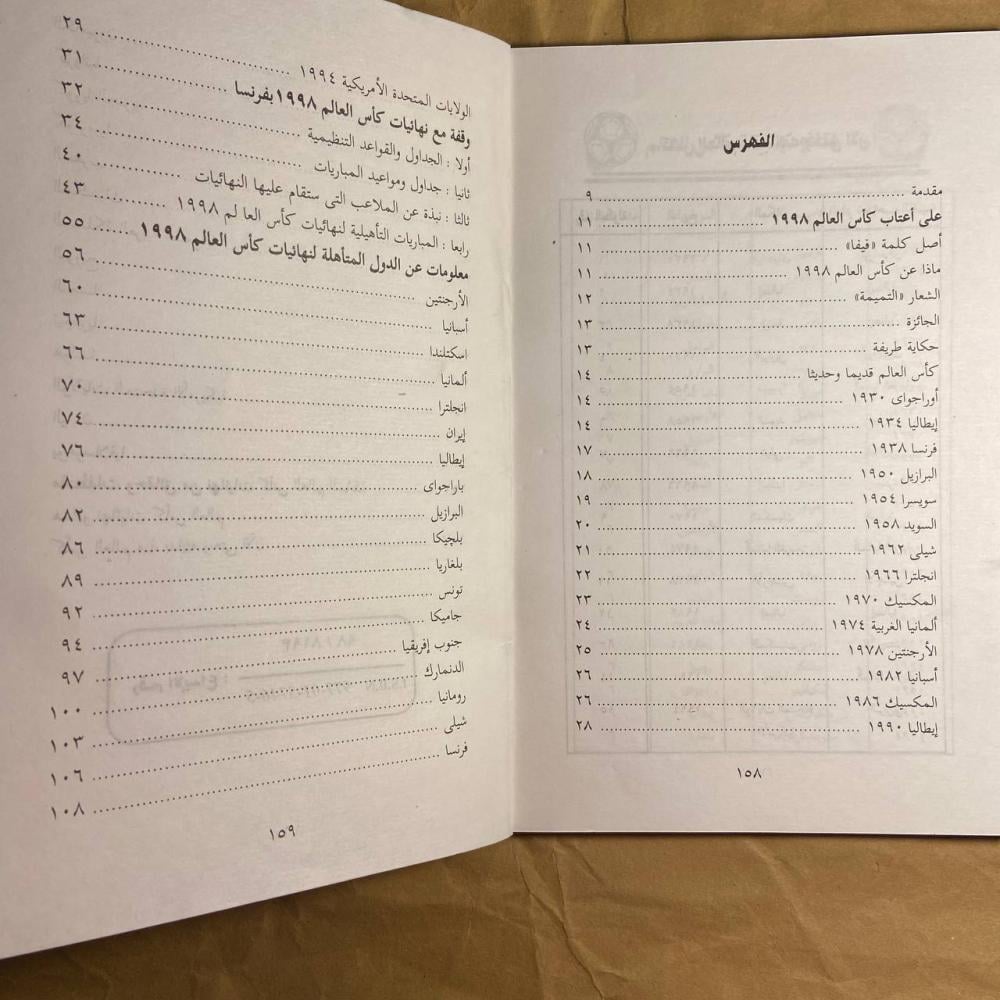 الفهرس
مقدمة ........ ٩
على أعتاب كأس العالم ١٩٩٨ ........ ١١
أصل كلمة «فيفا» ........ ١١
ماذا عن كأس العالم ١٩٩٨ ........ ١١
الشعار «التميمة» ........ ١٢
الجائزة ........ ١٣
حكاية طريفة ........ ١٣
كأس العالم قديما وحديثا ........ ١٤
أوراجواى ١٩٣٠ ........ ١٤
إيطاليا ١٩٣٤ ........ ١٤
فرنسا ١٩٣٨ ........ ١٧
البرازيل ١٩٥٠ ........ ١٨
سويسرا ١٩٥٤ ........ ١٩
السويد ١٩٥٨ ........ ٢٠
شيلى ١٩٦٢ ........ ٢١
انجلترا ١٩٦٦ ........ ٢٢
المكسيك ١٩٧٠ ........ ٢٣
ألمانيا الغربية ١٩٧٤ ........ ٢٤
الأرجنتين ١٩٧٨ ........ ٢٥
أسبانيا ١٩٨٢ ........ ٢٦
المكسيك ١٩٨٦ ........ ٢٦
إيطاليا ١٩٩٠ ........ ٢٨
١٥٨
الولايات المتحدة الأمريكية ١٩٩٤ ........ ٢٩
وقفة مع نهائيات كأس العالم ١٩٩٨ بفرنسا ........ ٣١
أولا : الجداول والقواعد التنظيمية ........ ٣٢
ثانيا : جداول ومواعيد المباريات ........ ٣٤
ثالثا : نبذة عن الملاعب التى ستقام عليها النهائيات ........ ٤٠
رابعا : المباريات التأهيلية لنهائيات كأس العالم ١٩٩٨ ........ ٤٣
معلومات عن الدول المتأهلة لنهائيات كأس العالم ١٩٩٨ ........ ٥٥
الأرجنتين ........ ٥٦
أسبانيا ........ ٦٠
اسكتلندا ........ ٦٣
ألمانيا ........ ٦٦
انجلترا ........ ٧٠
إيران ........ ٧٤
إيطاليا ........ ٧٦
باراجواى ........ ٨٠
البرازيل ........ ٨٢
بلچيكا ........ ٨٦
بلغاريا ........ ٨٩
تونس ........ ٩٢
جاميكا ........ ٩٤
جنوب إفريقيا ........ ٩٧
الدنمارك ........ ١٠٠
رومانيا ........ ١٠٣
شيلى ........ ١٠٦
فرنسا ........ ١٠٨
١٥٩